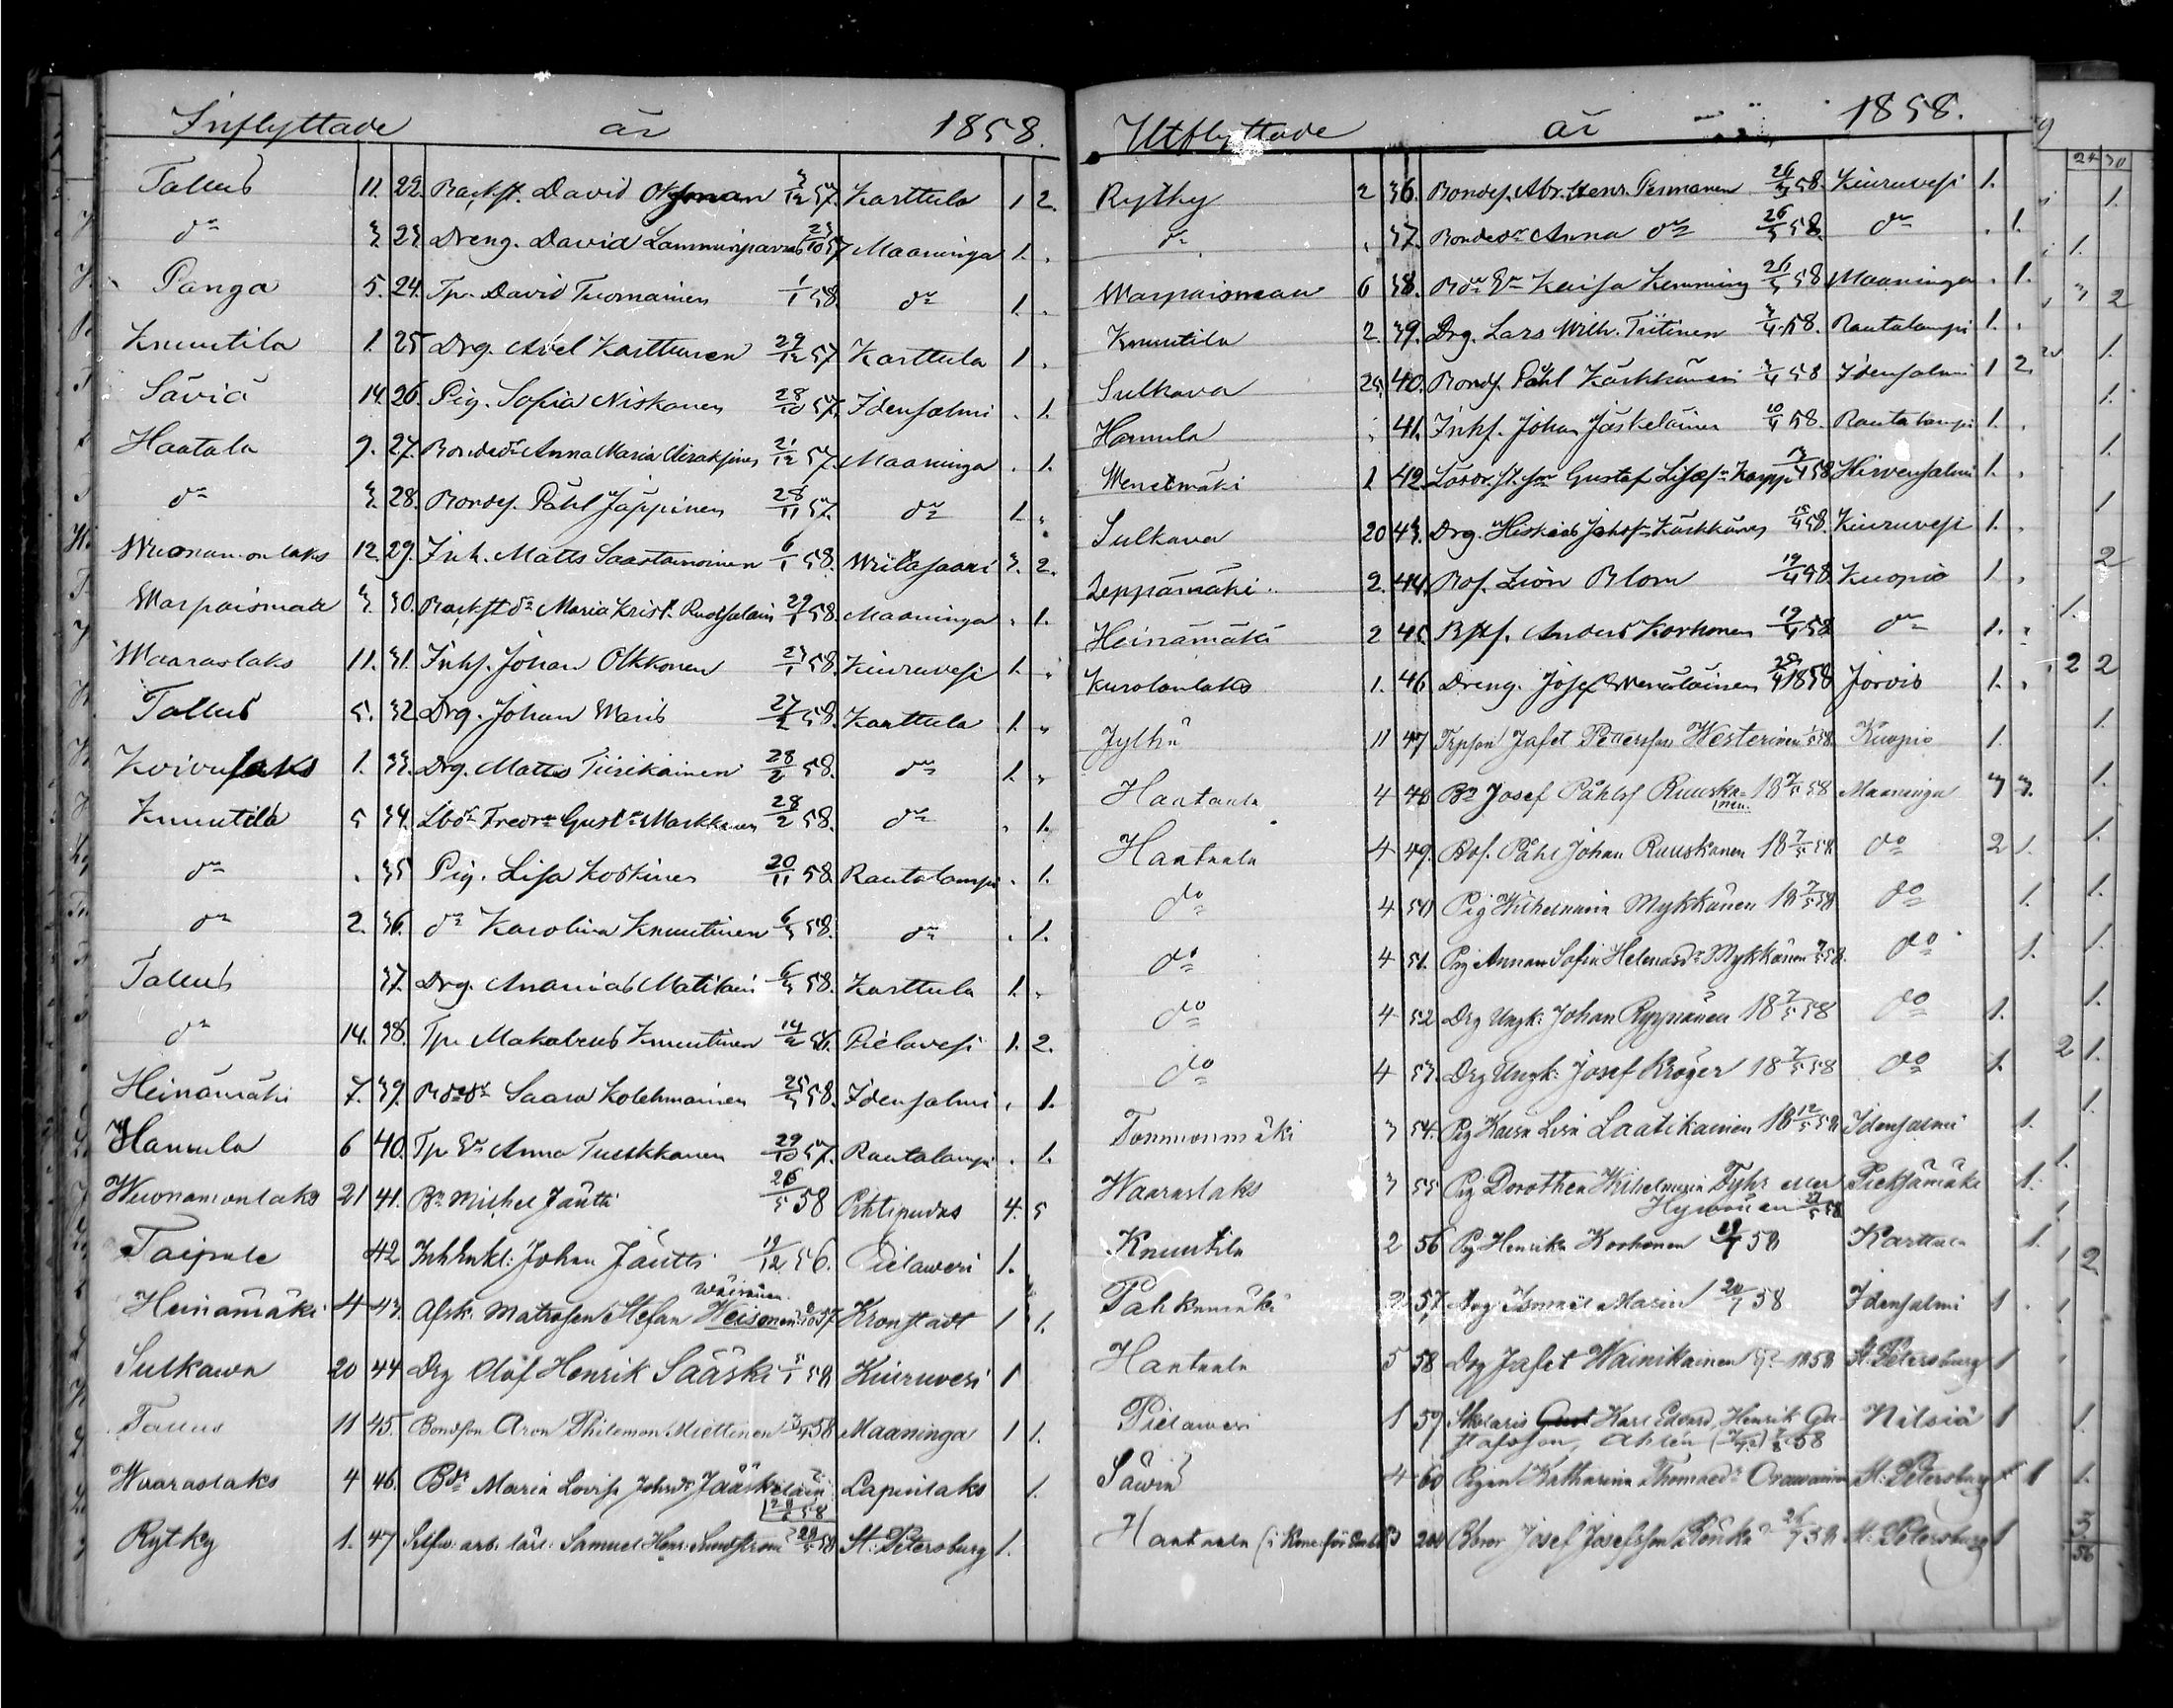 Inflyttade år 1858.
Tallus 11. 22. Backst. David Oksman 3/12 57. Karttula 1 2.
do 3 23 Dreng. David Lamminparras 23/10 57 Maaninga 1.
Panga 5. 24. Tp. David Tuomainen 1/1 58 do 1.
Knuutila 1. 25 Drg. Axel Karttunen 29/12 57 Karttula 1.
Säviä 14. 26. Pig. Sofia Niskanen 28/10 57. Idensalmi 1.
Haatala 9. 27. Bondedr Anna Maria 21/12 57. Maaninga 1.
do 3. 28. Bondes. Påhl Jäppinen 28/11 57. do 1.
Wuonamonlaks 12. 29. Inh. Matts Saastamoinen 6/1 58. Wiitasaari 3. 2.
Warpaismaa 3 30. Backst dr Maria Krist. 29/1 58. Maaninga 1.
Waaraslaks 11. 31. Inhs. Johan Olkkonen 23/1 58. Kiuruvesi 1.
Tallus 5. 32. Drg. Johan Waris 27/2 58. Karttula 1.
Koivujaks 1. 33. Drg. Matts Tiirikainen 28/2 58. do 1.
Knuutila 5 34. Lbdr Fredr Gustr Markkanen 28/2 58. do 1.
do 35 Pig. Lisa Koskinen 20/11 58. Rautalampi 1.
do 2. 36. do Karolina Knuutinen 6/3 58. do 1.
Tallus 37. Drg. Ananias Matilain 6/3 58. Karttula 1.
do 14. 38. Tpr Makabeus Knuutinen 14/2 56. Pielavesi 1. 2.
Heinämäki 7. 39. Bdedr Saara Kolehmainen 25/3 58. Idensalmi 1.
Hamula 6 40. Tp Er Anna Tuskkanen 29/10 57. Rautalampi 1.
Wuonamonlaks 21 41. Bn Michel Jäntti 26/5 58 Pihtipudas 4. 5
Taipale 42 Inh Enkl: Johan Jäntti 19/12 56. Pielawesi 1.
Wäisänen
Heinämäki 4 43. Afsk: Matrosen Stefan Weisonen 57. Kronstadt 1 1.
Sulkawa 20 44 Drg Olof Henrik Sääski 58 Kiuruvesi 1
Tallus 11 45. Bondson Aron Philemon Miettinen 58 Maaninga 1 1.
Waaraslaks 4 46. Bdr Maria Lovisa Johsdr Jääskeläin Lapinlaks 1.
28/5 58
Rytky 1. 47 arb. lärl: Samuel Henr: Sundström 29/5 58 St: Petersburg 1.
Utflyttade år 1858.
Rythy 2 36. Bondes. Abr. Henr. Permanen 26/3 58. Kiuruvesi 1.
do 37. Bondedr Anna do 26/3 58. do 1.
Warpaismaa 6 38. Bdr Er Kaisa Kemming 26/3 58 Maaninga 1.
Knuutila 2. 39. Drg. Lars Wilh. Tiitinen 3/4 58. Rautalampi 1.
Sulkava 25. 40. Bonds. Påhl Kärkkäinen 3/4 58 Idensalmi 1 2.
Hamula 41. Inhs. Johan Jäskeläinen 10/4 58. Rautalampi 1.
Wenetmäki 1 42. Gustaf 13/4 58 Hirvensalmi 1.
Sulkava 20 43. Drg. Hiskias Kärkkäinen 15/4 58. Kiuruvesi 1.
Leppämäki 2. 44. Bos. Lion Blom 19/4 58 Kuopio 1.
Heinämäki 2 45. Bps. Anders Korhonen 19/4 58 do 1.
Kurolanlaks 1. 46 Dreng. Josef Wenäläinen 28/4 1858 Jorois 1.
Jylhä 11 47 Tpson Jafet Pettersson Westerinen 58. Kuopio 1.
Haataala 4 48 Bn Josef Påhlss Ruuska- 18 7/5 58 Maaninga 3 3.
inen.
Haataala 4 49. Bos. Påhl Johan Ruuskanen 18 7/5 58 do 2 1.
do 4 50 Pig Wilhelmina Mykkänen 18 7/5 58 do 1.
do 4 51. Pig Anna Sofia Helenasdr Mykkänen 58. do 1.
do 4 52 Drg Ungk: Johan Ryynänen 18 7/5 58 do 1.
do 4 53. Drg Ungk: Josef Kröger 18 7/5 58 do 1.
Tommonmäki 3 54. Pig Kaisa Lisa Laatikainen 18 12/5 58 Idensalmi 1.
Waaraslaks 3 55 Pig Dorothea Wilhelmina Fyhr eller Pieksämäki 1.
Hyvönen 58
Knuutila 2 56 Pig Henrika Korhonen 58 Karttula 1.
Pahkamäki 2 57 Drg Ismael Marin 20/7 58 Idensalmi 1
Haataala 5 58 Drg Jafet Wainikainen 1858 St. Petersburg 1
Pielawesi 1 59 Skolaris Gust Karl Edvard Henrik Gu- Nilsiä 1
stafsson, Ahlén 58
Säwiä 4 60 Pigan Katharina Thomaedr St: Petersburg 1
Haataala 204 Josef Josefsson 26/7 58 St: Petersburg 1